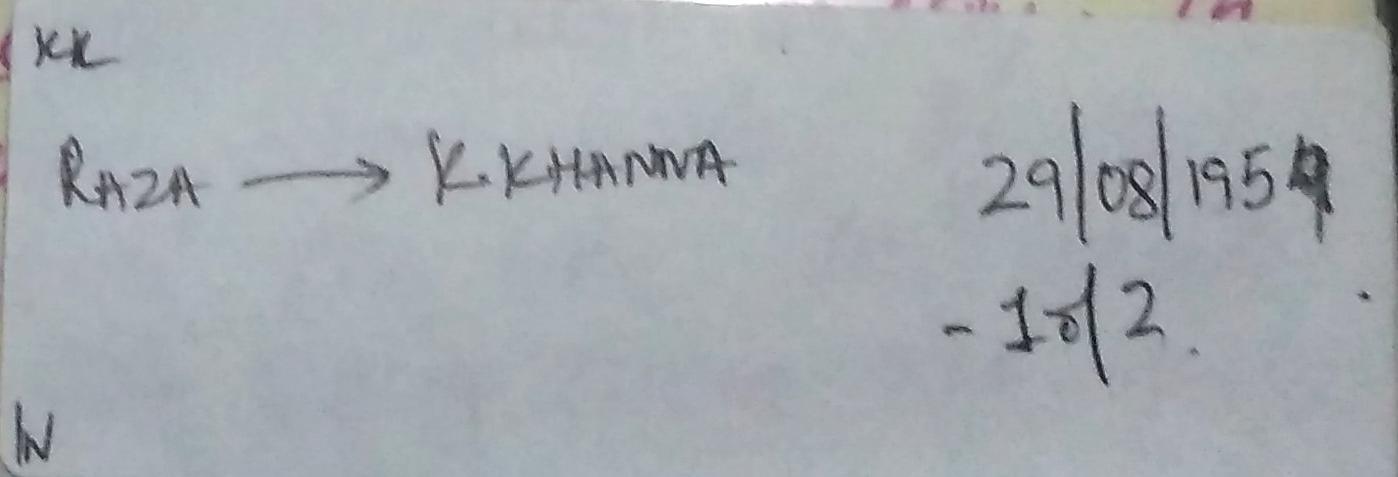 KK
RAZA → K. KHANNA 29/08/1954
- 1 of 2.
IN